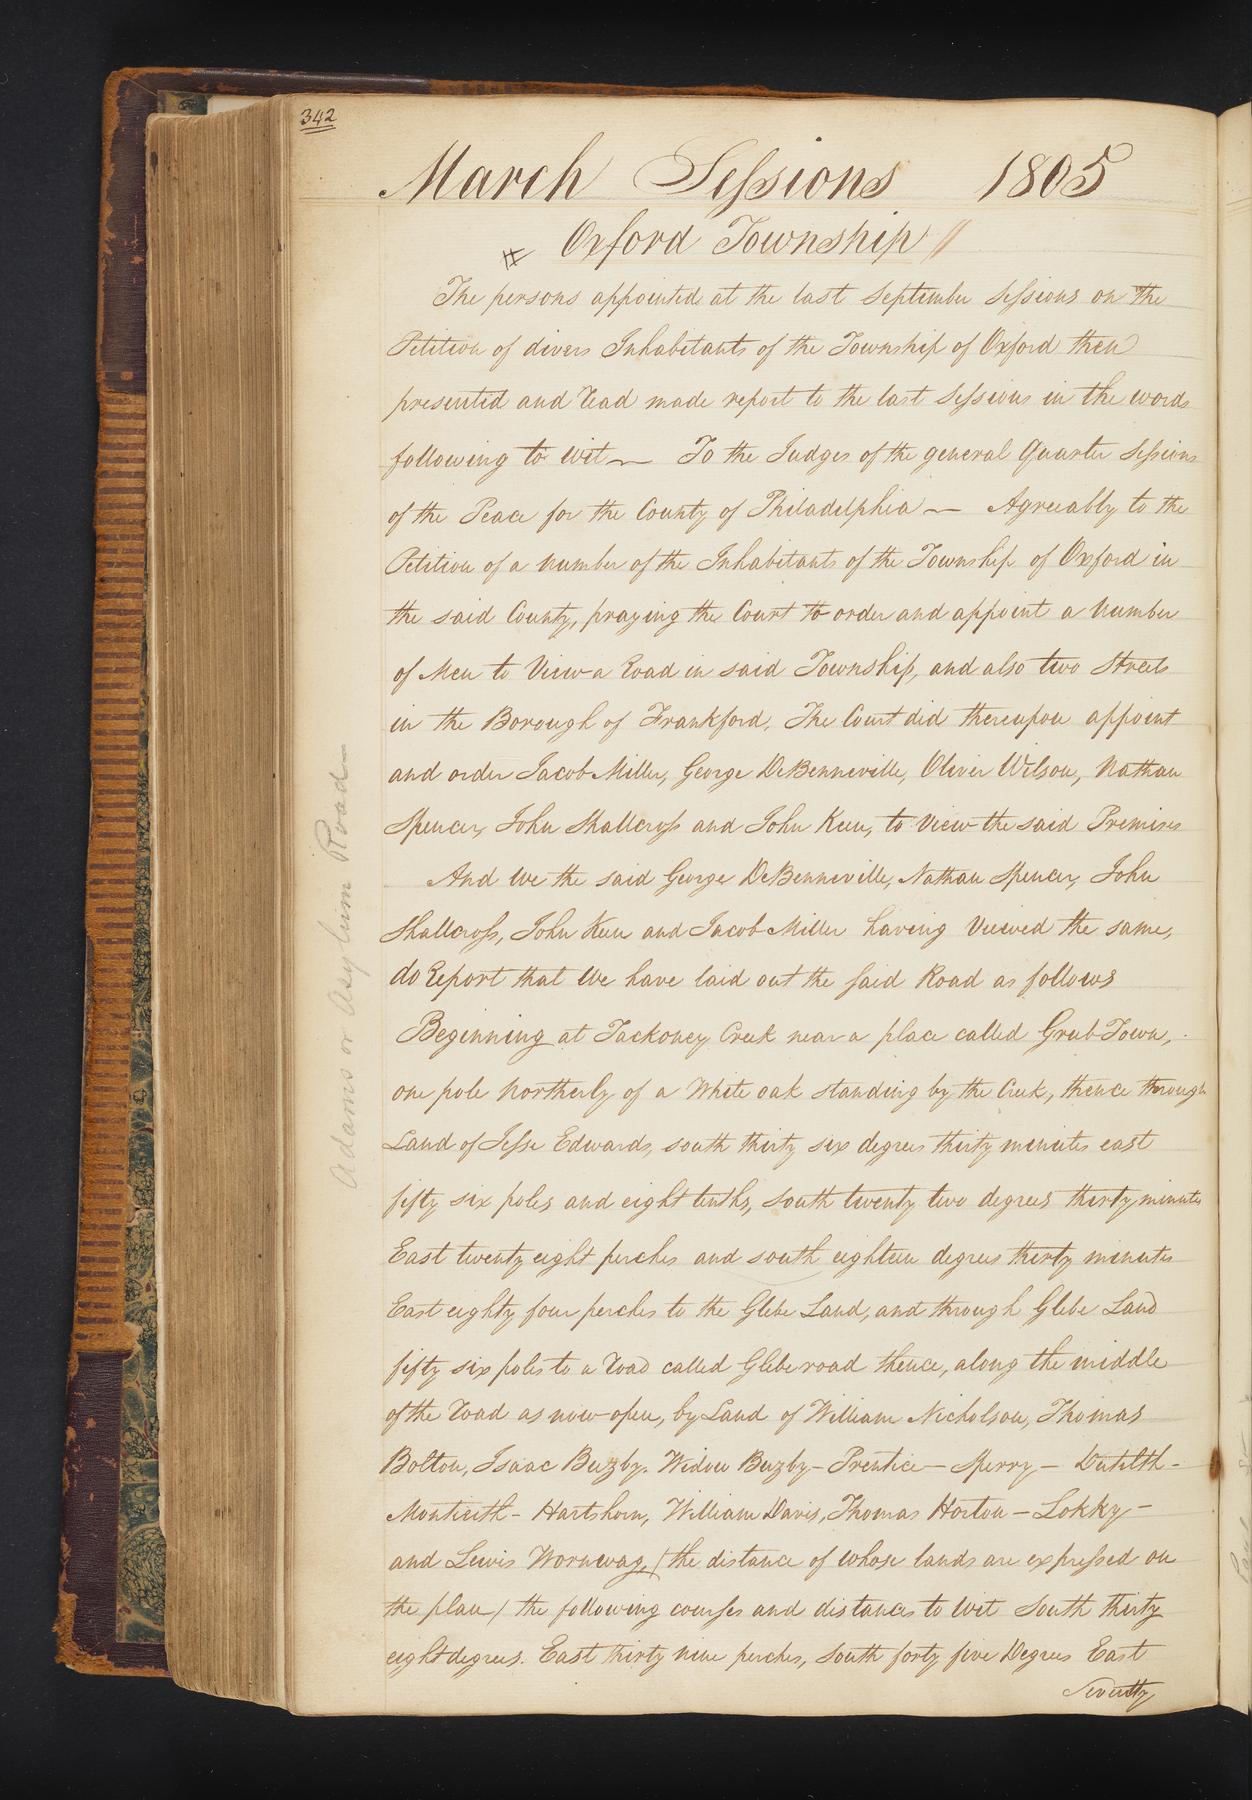 342
March Sessions 1805
# Oxford Township //
The persons appointed at the last September Sessions on the
Petition of divers Inhabitants of the Township of Oxford then
presented and Read made report to the last Sessions in the words
following to wit — To the Judges of the general Quarter Sessions
of the Peace for the County of Philadelphia — Agreeably to the
Petition of a number of the Inhabitants of the Township of Oxford in
the said County, praying the Court to order and appoint a Number
of Men to View a Road in said Township, and also two Streets
in the Borough of Frankford, The Court did thereupon appoint
and order Jacob Miller, George DeBenneville, Oliver Wilson, Nathan
Spencer, John Shallcross and John Keen, to View the said Premises
And We the said George DeBenneville, Nathan Spencer, John
Shallcross, John Keen and Jacob Miller having Viewed the same,
do Report that We have laid out the said Road as follows
Beginning at Tackoney Creek near a place called Grub Town,
one pole Northerly of a White oak standing by the Creek, thence through
Land of Jesse Edwards, south thirty six degrees thirty minutes east
fifty six poles and eight tenths, South twenty two degrees thirty minutes
East twenty eight perches and south eighteen degrees thirty minutes
East eighty four perches to the Glebe Land, and through Glebe Land
fifty six poles to a Road called Glebe road thence, along the middle
of the Road as now open, by Land of William Nicholson, Thomas
Bolton, Isaac Buzby. Widow Buzby - Prentice - Sperry - Dutilth -
Monticith - Hartshorn, William Davis, Thomas Horton - Lokky -
and Lewis Wornwag, (the distance of whose lands are expressed on
the plan) the following courses and distances to Wit South thirty
eight degrees. East thirty nine perches, South forty five Degrees East
Seventy
Adams or Asylum Road